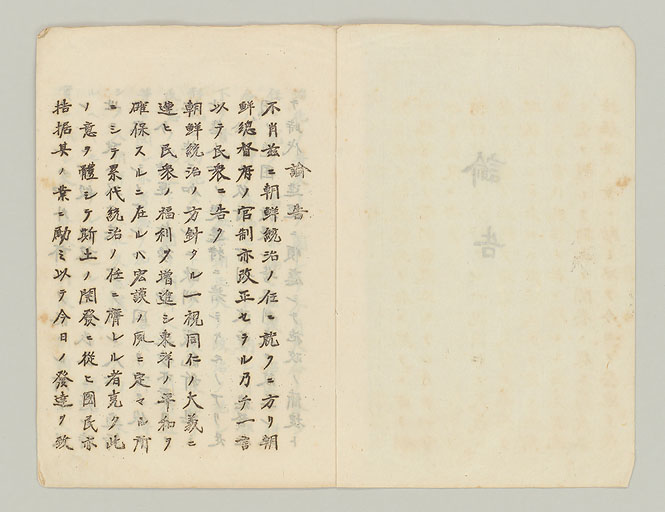 諭告
不肖茲ニ朝鮮統治ノ任ニ就クニ方リ朝
鮮總督府ノ官制亦改正セラル乃チ一言
以テ民衆ニ告ク
朝鮮統治ノ方針タル一視同仁ノ大義ニ
遵ヒ民衆ノ福利ヲ增進シ東洋ノ平和ヲ
確保スルニ在ルハ宏謨ノ夙ニ定マレル所
ニシテ累代統治ノ任ニ膺レル者克ク此
ノ意ヲ體シテ斯土ノ開發ニ從ヒ國民亦
拮据其ノ業ニ勵ミ以テ今日ノ發達ヲ致